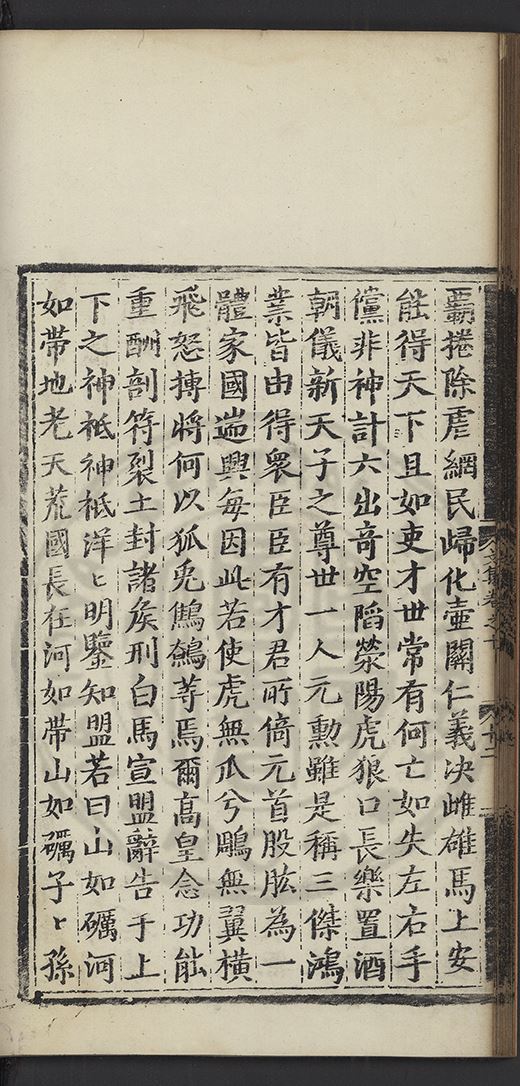 霸捲除虐網民歸化壷關仁義决雌雄馬上安
能得天下且如吏才世常有何亡如失左右手
儻非神計六出竒空䧟滎陽虎狼口長樂置酒
朝儀新天子之尊世一人元勳雖是稱三傑鴻
業皆由得衆臣臣有才君所倚元首股肱為一
體家國耑興每因此若使虎無爪兮鵰無翼橫
飛怒摶將何以狐兎鵂鶹等焉爾高皇念功能
重酬剖符裂土封諸矦刑白馬宣盟辭告于上
下之神祗神祗洋〻明鑒知盟若曰山如礪河
如帶地老天荒國長在河如帶山如礪子〻孫